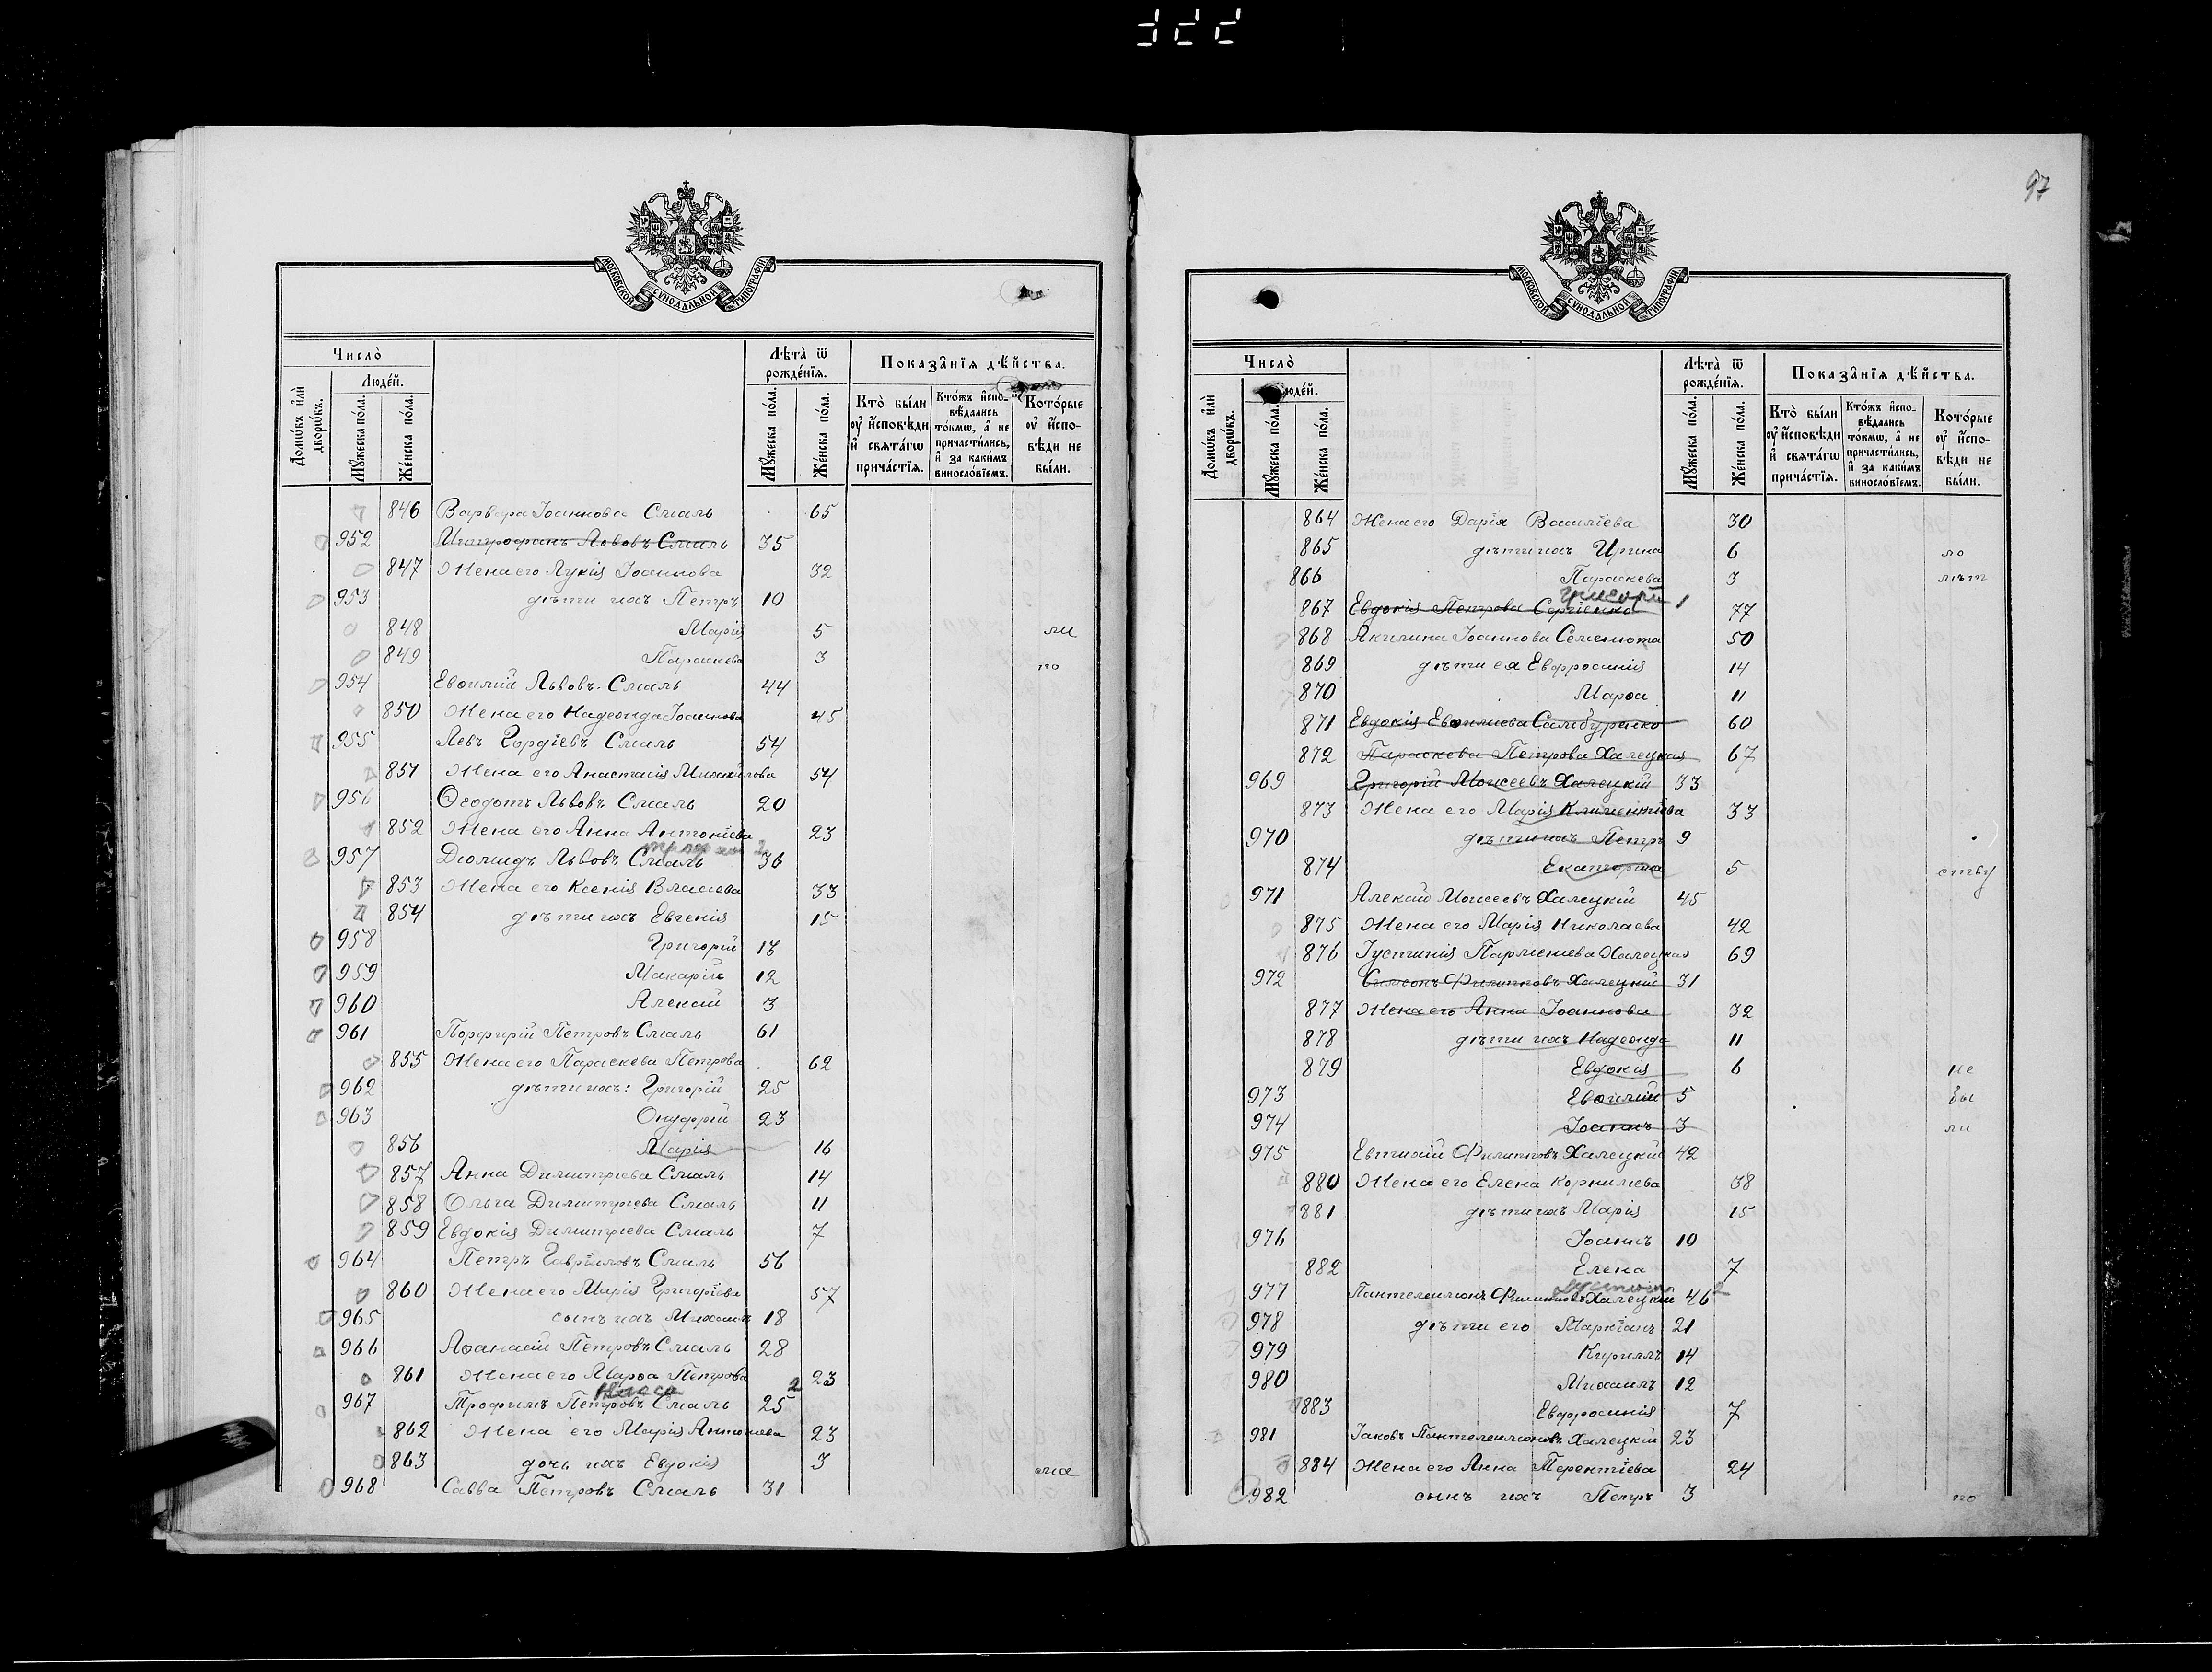 322
МОСКОВСКОЙ СУНОДАЛЬНОЙ ТИПОГРАФІИ
Число̀
Людéй.
Домѡ́въ и҆лѝ дворѡ́въ.
Мꙋ́жеска по́ла.
Же́нска по́ла.
Лѣ́та ѿ рожде́нїѧ.
Мꙋ́жеска по́ла.
Же́нска по́ла.
Показа̑нїѧ дѣ́йства.
Кто̀ бы́ли ᲂу҆ и҆сповѣди и҆ свѧта́гѡ прича́стїѧ.
Кто́жъ и҆сповѣ́дались то́кмѡ, а҆ не причасти́лись, и҆ за каки́мъ винosло́вїемъ.
Кото́рые ᲂу҆ и҆сповѣди не бы́ли.
846 Варвара Іоаннова Смаль 65
952 Митрофанъ Львовъ Смаль 35
847 Жена его Лукія Іоаннова 32
953 дѣти ихъ Петръ 10
848 Марія 5 ли
849 Параскева 3 по
954 Евѳимій Львовъ Смаль 44
850 Жена его Надежда Іоаннова 45
955 Левъ Гордіевъ Смаль 54
851 Жена его Анастасія Михайлова 54
956 Ѳеодотъ Львовъ Смаль 20
852 Жена его Анна Антоніева 23
957 Діомидъ Львовъ Смаль 36
853 Жена его Ксенія Власіева 33
854 дѣти ихъ Евгенія 15
958 Григорій 18
959 Макарій 12
960 Алексій 3
961 Порфирій Петровъ Смаль 61
855 Жена его Параскева Петрова 62
962 дѣти ихъ: Григорій 25
963 Онуфрій 23
856 Марія 16
857 Анна Димитріева Смаль 14
858 Ольга Димитріева Смаль 11
859 Евдокія Димитріева Смаль 7
964 Петръ Гавріиловъ Смаль 56
860 Жена его Марія Григоріева 57
965 сынъ ихъ Михаилъ 18
966 Аѳанасій Петровъ Смаль 28
861 Жена его Марѳа Петрова 23
967 Трофимъ Петровъ Смаль 25
862 Жена его Марія Антоніева 23
863 дочь ихъ Евдокія 3
968 Савва Петровъ Смаль 31
97
МОСКОВСКОЙ СУНОДАЛЬНОЙ ТИПОГРАФІИ
Число̀
Людéй.
Домѡ́въ и҆лѝ дворѡ́въ.
Мꙋ́жеска по́ла.
Же́нска по́ла.
Лѣ́та ѿ рожде́нїѧ.
Мꙋ́жеска по́ла.
Же́нска по́ла.
Показа̑нїѧ дѣ́йства.
Кто̀ бы́ли ᲂу҆ и҆сповѣди и҆ свѧта́гѡ прича́стїѧ.
Кто́жъ и҆сповѣ́дались то́кмѡ, а҆ не причасти́лись, и҆ за каки́мъ винosло́вїемъ.
Кото́рые ᲂу҆ и҆сповѣди не бы́ли.
864 Жена его Дарія Василіева 30
865 дѣти ихъ Ирина 6 ло
866 Параскева 3 лѣт
Григорій 1
867 Евдокія Петрова Сергіенко 77
868 Акилина Іоаннова Семемота 50
869 дѣти ея Евфросинія 14
870 Марѳа 11
871 Евдокія Евѳиміева Самбуренко 60
872 Параскева Петрова Халецкая 67
969 Григорій Моисеевъ Халецкій 33
873 Жена его Марія Климентіева 33
970 дѣти ихъ Петръ 9
874 Екатерина 5 ству
971 Алексій Моисеевъ Халецкій 45
875 Жена его Марія Николаева 42
876 Іустинія Парменіева Халецкая 69
972 Симеонъ Филипповъ Халецкій 31
877 Жена его Анна Іоаннова 32
878 дѣти ихъ Надежда 11
879 Евдокія 6 не
973 Евѳимій 5 бы
974 Іоаннъ 3 ли
975 Евтихій Филипповъ Халецкій 42
880 Жена его Елена Корниліева 38
881 дѣти ихъ Марія 15
976 Іоаннъ 10
882 Елена 7
977 Пантелеимонъ Филипповъ Халецкій 46
978 дѣти его Маркіанъ 21
979 Кириллъ 14
980 Михаилъ 12
883 Евфросинія 7
981 Іаковъ Пантелеимоновъ Халецкій 23
884 Жена его Анна Терентіева 24
982 сынъ ихъ Петръ 3 по